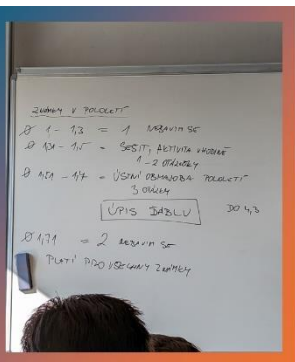 ZNÁMKY V POLOLETÍ
Ø 1 - 1,3 = 1 NEBAVIM SE
Ø 1,31 - 1,5 = SEŠIT, AKTIVITA V HODINĚ
1-2 OTÁZKY
Ø 1,51 - 1,7 = ÚSTNÍ OBHAJOBA POLOLETÍ
3 OTÁZKY
ÚPIS ĎÁBLU DO 4,3
Ø 1,71 = 2 NEBAVIM SE
PLATÍ PRO VŠECHNY ZNÁMKY